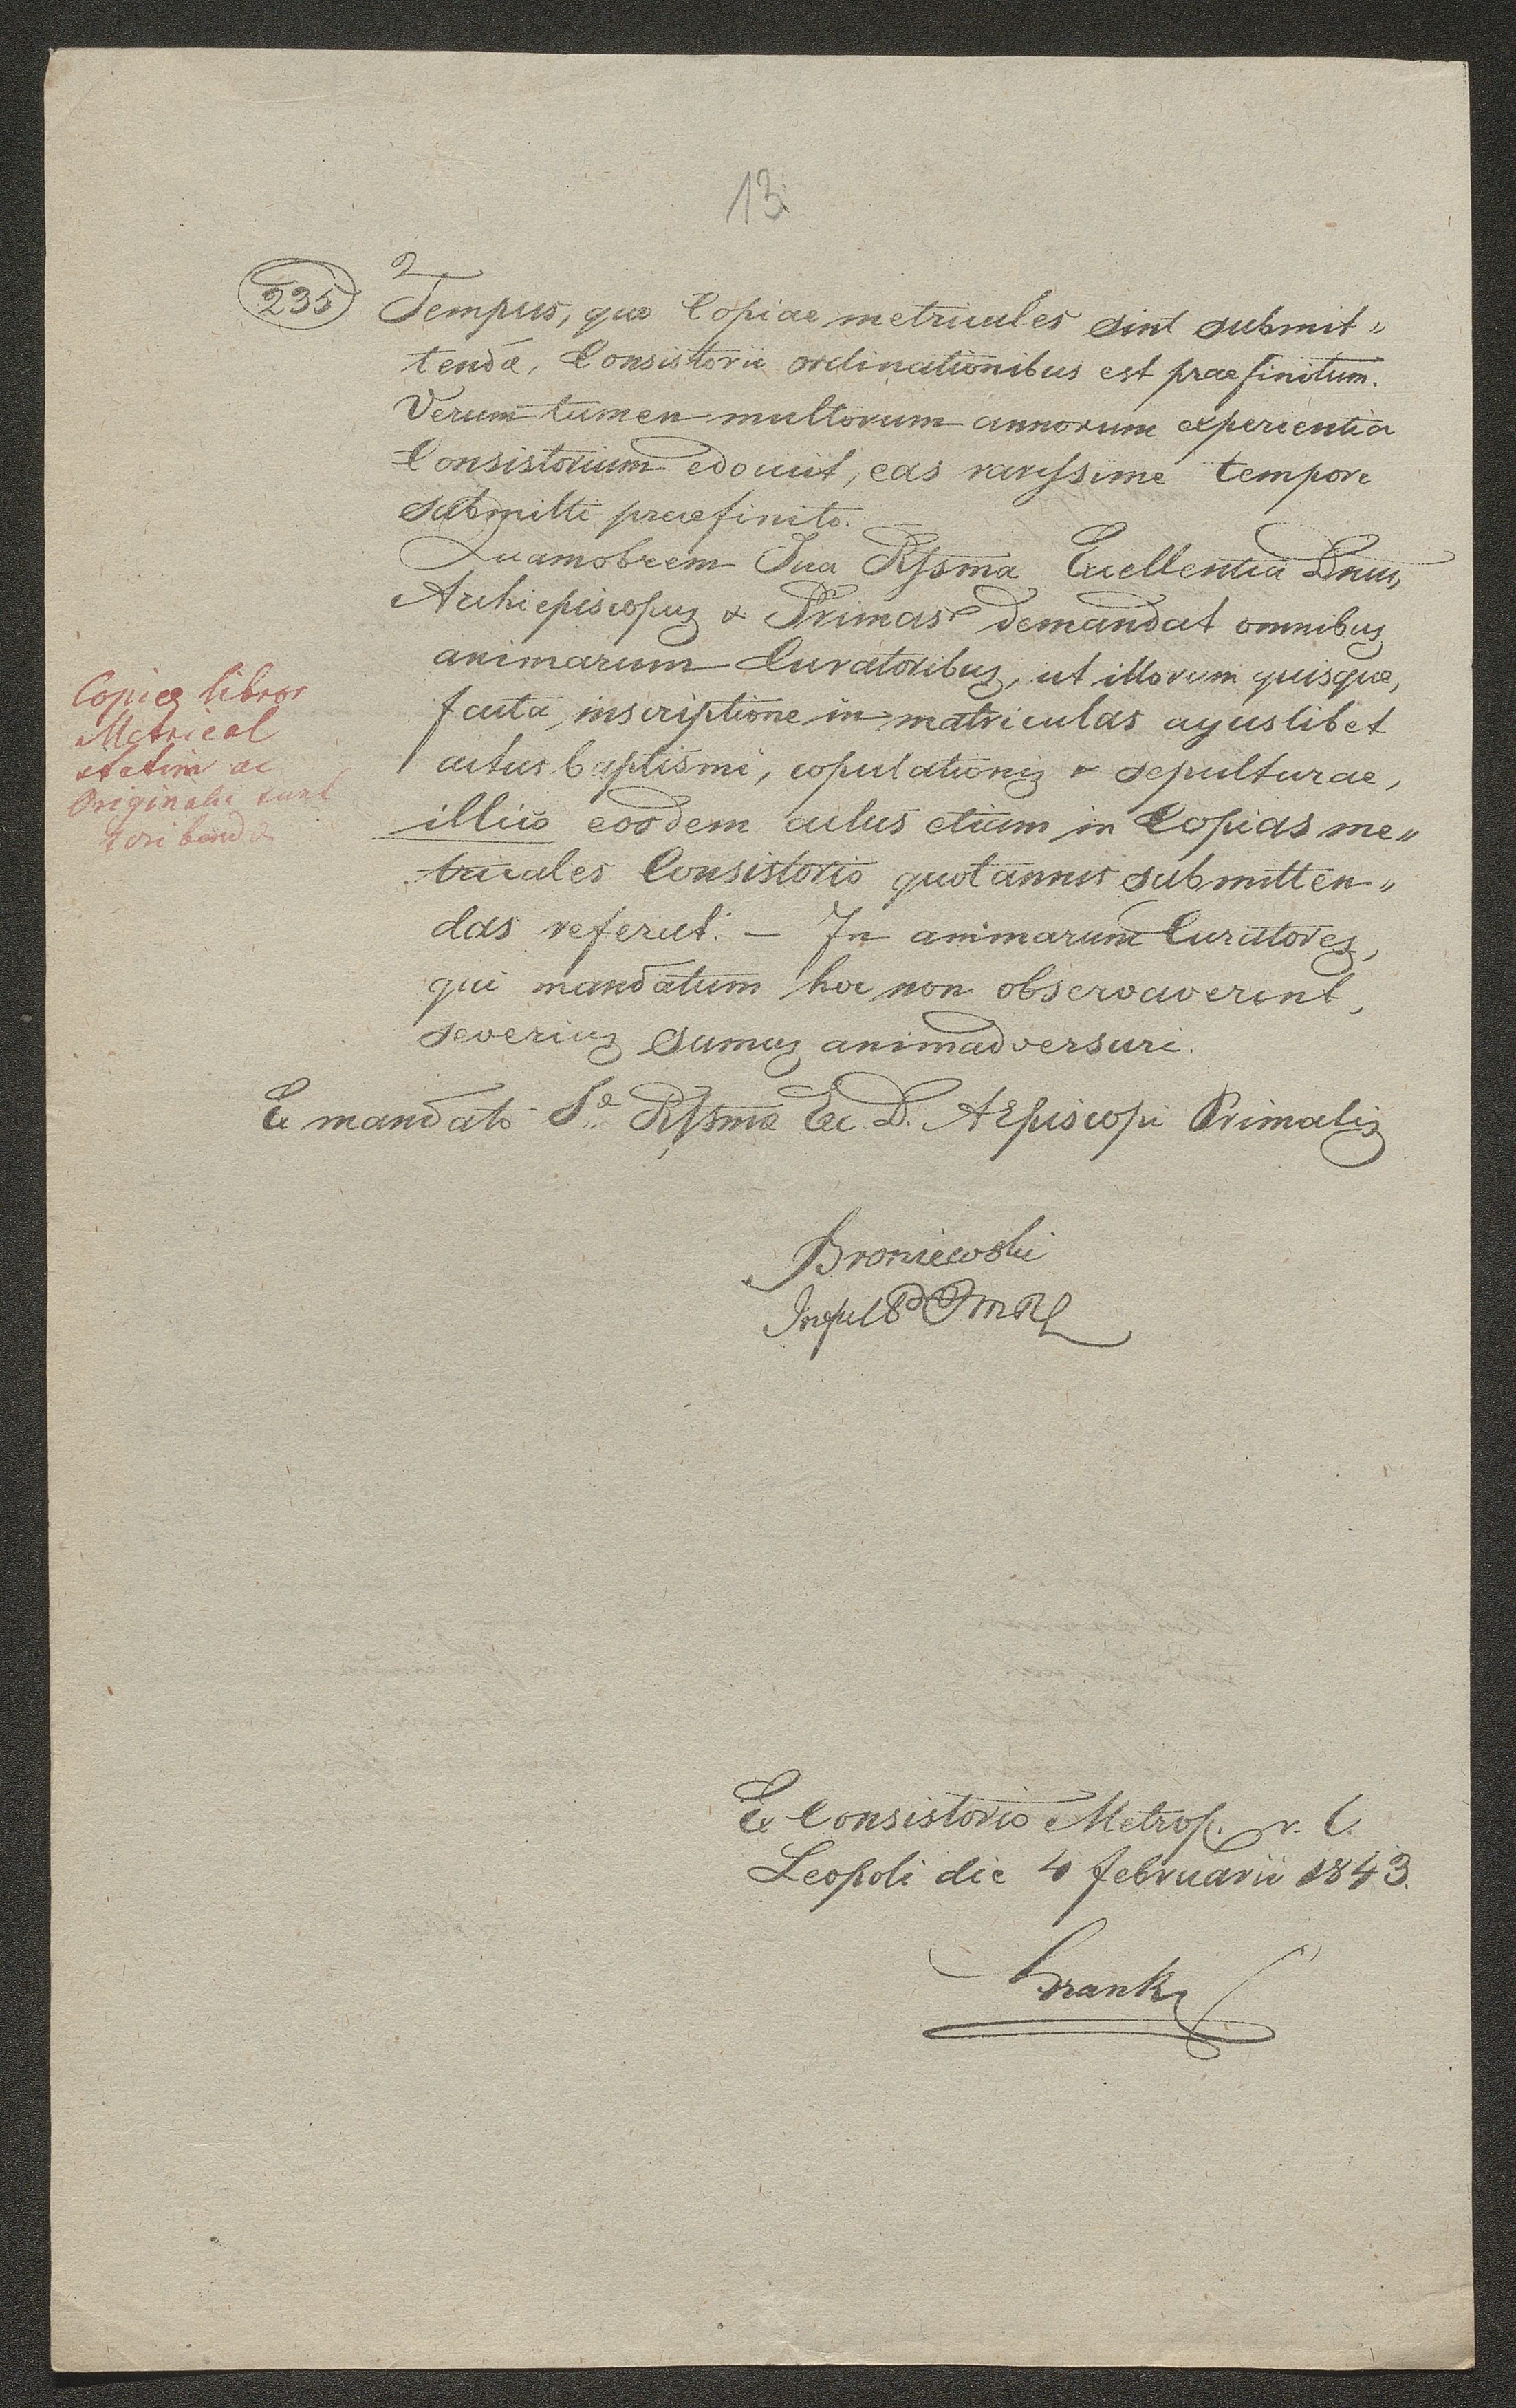 13
235
Tempus, quo Copiae metricales sint submit„
tendæ, Consistorii ordinationibus est praefinitum.
Verum tamen multorum annorum experientia
Consistorium edocuit, eas rarissime tempore
submitti praefinito.
Quamobrem Sua Rssma Excellentia Dnus
Archiepiscopus & Primas demandat omnibus
animarum Curatoribus, ut illorum quisque,
facta inscriptione in matriculas cujuslibet
actus baptismi, copulationis & sepulturae,
illico eosdem actus etiam in Copias me„
tricales Consistorio quotannis submitten„
das referat. — In animarum Curatores,
qui mandatum hoc non observaverint,
severius sumus animadversuri.
Copiæ libror
Metrical
statim ac
Originalia sunt
scribendæ
Ex mandato Sæ Rssmæ Exc. D. AEpiscopi Primatis
Broniewski
Ex Consistorio Metrop. r. l.
Leopoli die 4 februarii 1843.
Frank